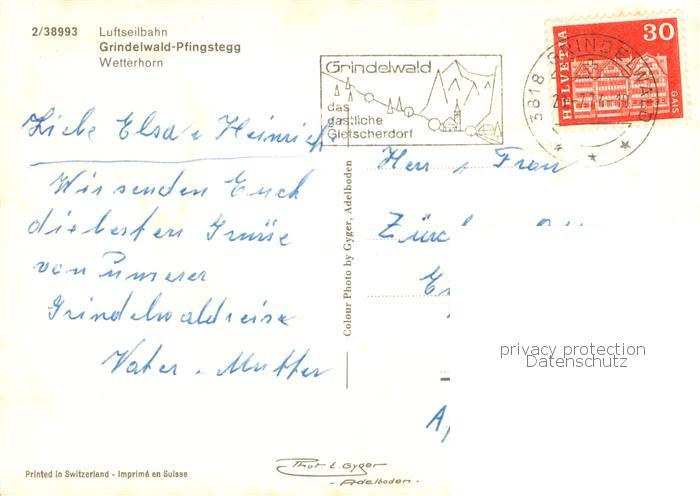 2/38993 Luftseilbahn
Grindelwald-Pfingstegg
Wetterhorn
Grindelwald
das
gastliche
Gletscherdorf
3818 GRINDELWALD
HELVETIA
30
GAIS
Liebe Elsa & Heinrich
Wir senden Euch
die besten Grüsse
von unserer
Grindelwaldreise
Vater & Mutter
Colour Photo by Gyger, Adelboden
Herr & Frau
privacy protection
Datenschutz
Phot. E. Gyger
- Adelboden -
Printed in Switzerland - Imprimé en Suisse